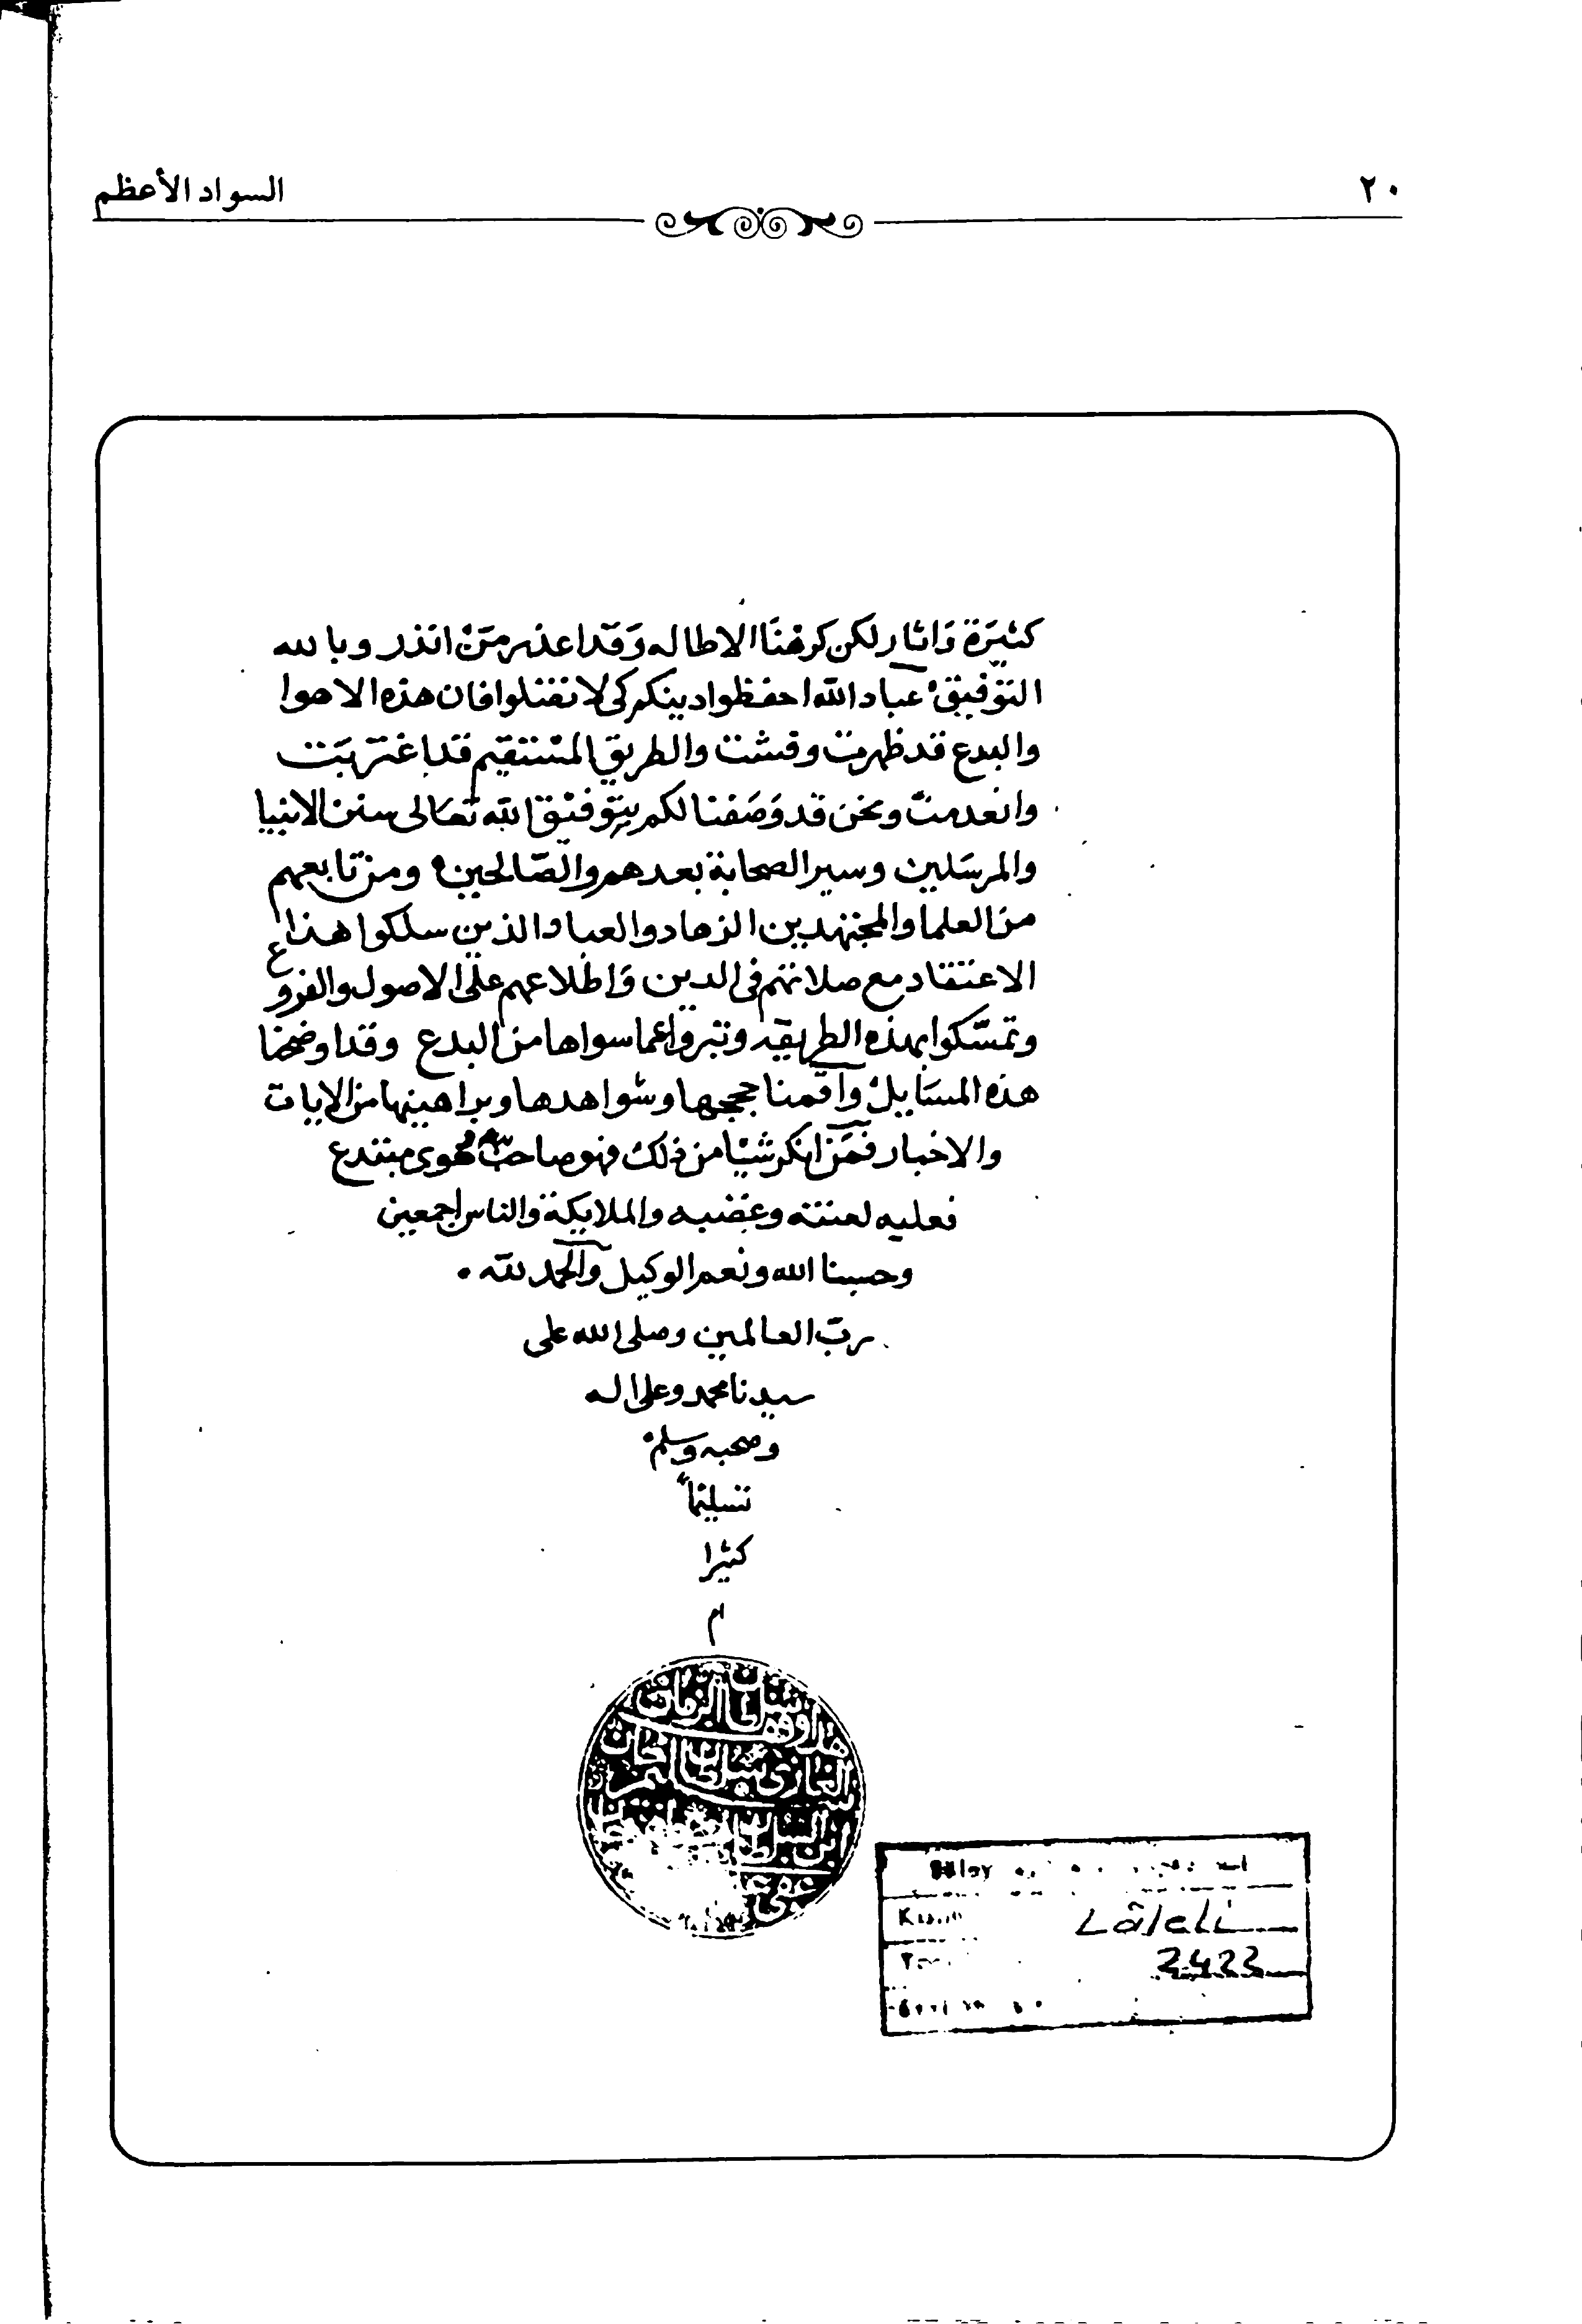 ٢٠
السواد الأعظم
كثيرة واثار لكن كرهنا الاطاله وقد اعذر من انذر وبالله
التوفيق عباد الله احفظوا دينكم كى لا تفتلوا فان هذه الاهوا
والبدع قد ظهرت وفشت والطريق المستقيم قد اغتربت
وانعدمت ونحن قد وصفنا لكم بتوفيق الله تعالى سنن الانبيا
والمرسلين وسير الصحابة بعدهم والصالحين ومن تابعهم
من العلما والمجتهدين الزهاد والعباد الذين سلكوا هذا
الاعتقاد مع صلابتهم فى الدين واطلاعهم على الاصول والفروع
وتمسّكوا بهذه الطريقه وتبروا عما سواها من البدع وقد اوضحنا
هذه المسايل وأقمنا حججها وشواهدها وبراهينها من الايات
والاخبار فمن انكر شيئا من ذلك فهو صاحب هوى مبتدع
فعليه لعنته وغضبه والملايكة والناس اجمعين
وحسبنا الله ونعم الوكيل والحمد لله
ربّ العالمين وصلى الله على
سيدنا محمد وعلى اله
وصحبه وسلم
تسليماً
كثيرا
م
Lâleli
2422